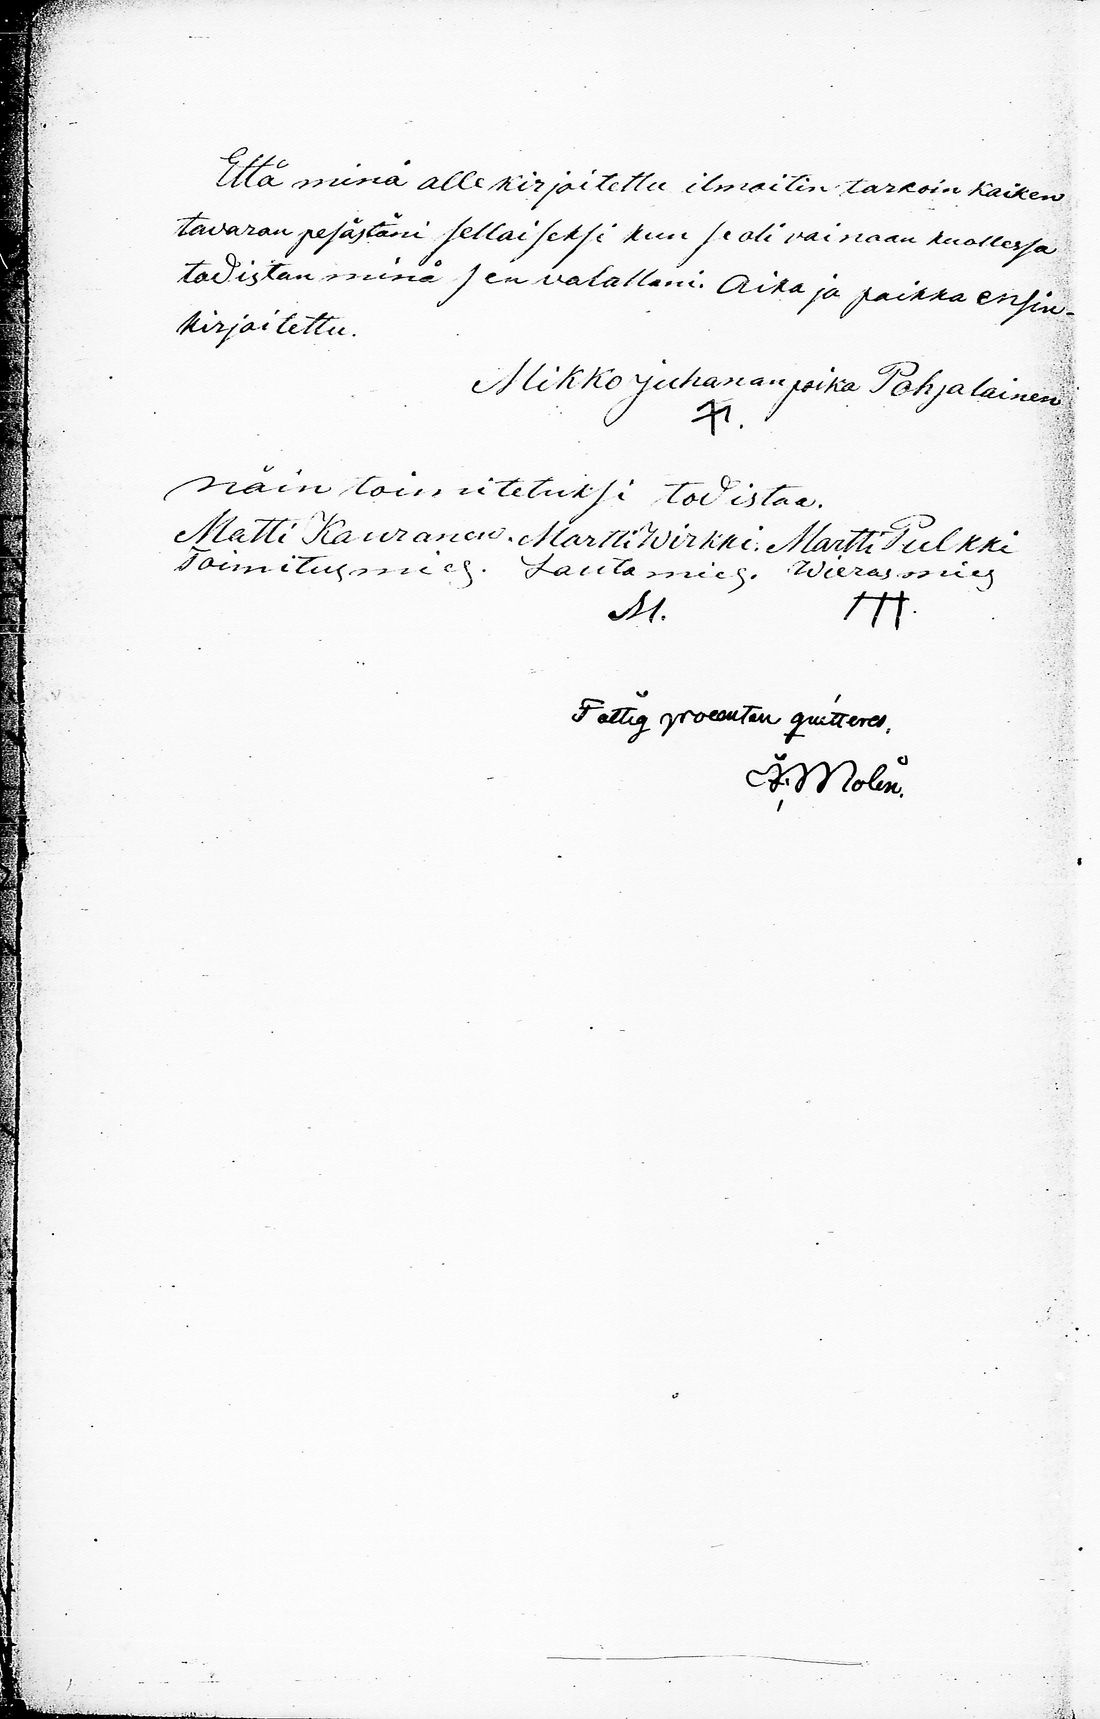 Että minä allekirjoitettu ilmoitin tarkoin kaiken
tavaran pesästäni sellaiseksi kun se oli vainaan kuollessa
todistan minä sen valallani. Aika ja paikka ensin-
kirjoitettu.
Mikko Juhananpoika Pohjalainen
näin toimitetuksi todistaa.
Matti Kauranen. Martti Wirkki. Martti Pulkki
Toimitusmies. Lautamies. Wierasmies
M.
Fattig procenten quitteras,
Molin.